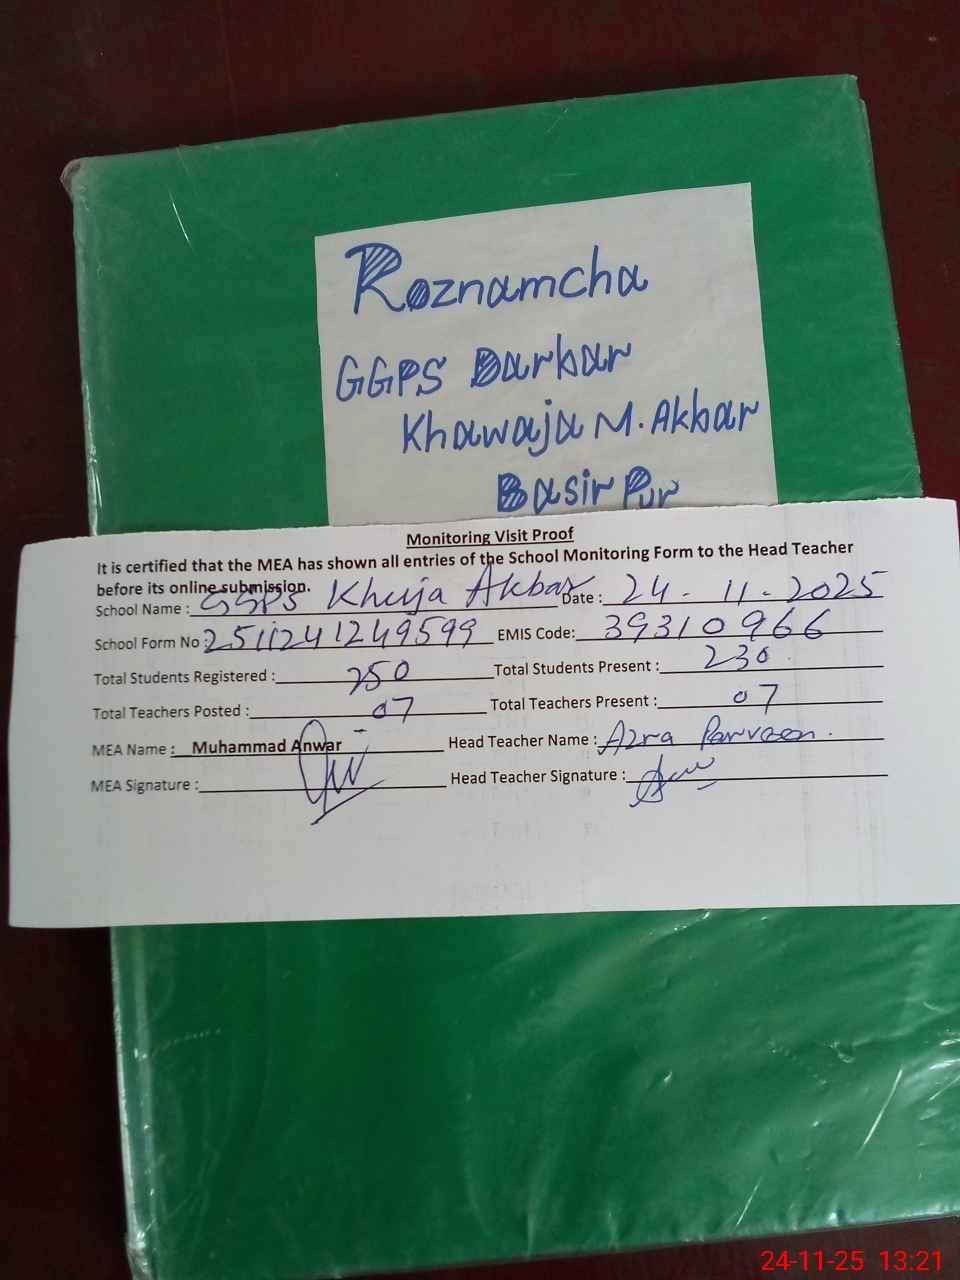 Roznamcha
GGPS Darbar
Khawaja M. Akbar
Basir Pur
Monitoring Visit Proof
It is certified that the MEA has shown all entries of the School Monitoring Form to the Head Teacher
before its online submission.
School Name : GGPS Khuja Akbar Date : 24-11-2025
School Form No : 2511241249599 EMIS Code: 39310966
Total Students Registered : 250 Total Students Present : 230
Total Teachers Posted : 07 Total Teachers Present : 07
MEA Name : Muhammad Anwar Head Teacher Name : Azra Parveen.
MEA Signature : Head Teacher Signature :
24-11-25 13:21